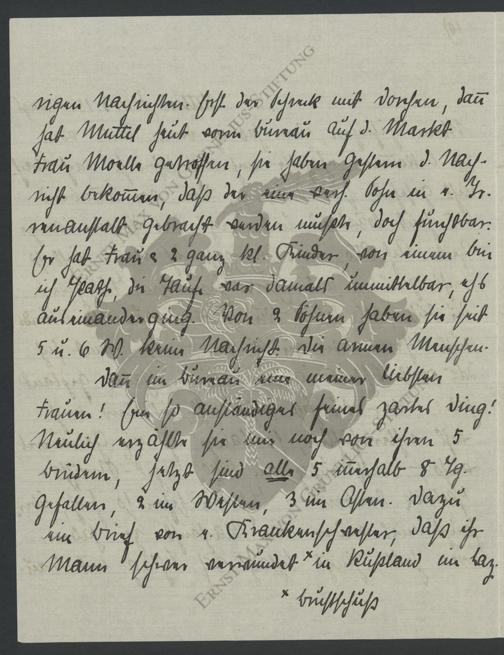 rigen Nachrichten. Erst der Schreck mit Dorchen, dann
hat Muttel heut vorm Bureau auf d. Markt
Frau Moelle getroffen, sie haben gestern d. Nach-
richt bekommen, daß der eine verh. Sohn in e. Ir-
renanstalt gebracht werden mußte, doch furchtbar.
Er hat Frau u. 2 ganz kl. Kinder, von einem bin
ich Pathe, die Taufe war damals unmittelbar, ehs
auseinanderging. Von 2 Söhnen haben sie seit
5 u. 6 W. keine Nachricht. Die armen Menschen.
Dann im Bureau eine meiner liebsten
Frauen! Ein so anständiges feines zartes Ding!
Neulich erzählte sie mir noch von ihren 5
Brüdern, jetzt sind alle 5 innerhalb 8 Tg.
gefallen, 2 im Westen, 3 im Osten. Dazu
ein Brief von e. Krankenschwester, daß ihr
Mann schwer verwundet x in Rußland im Laz.
x Brustschuß
ERNST MAX VON GRUNELIUS-STIFTUNG
ERNST MAX VON GRUNELIUS-STIFTUNG